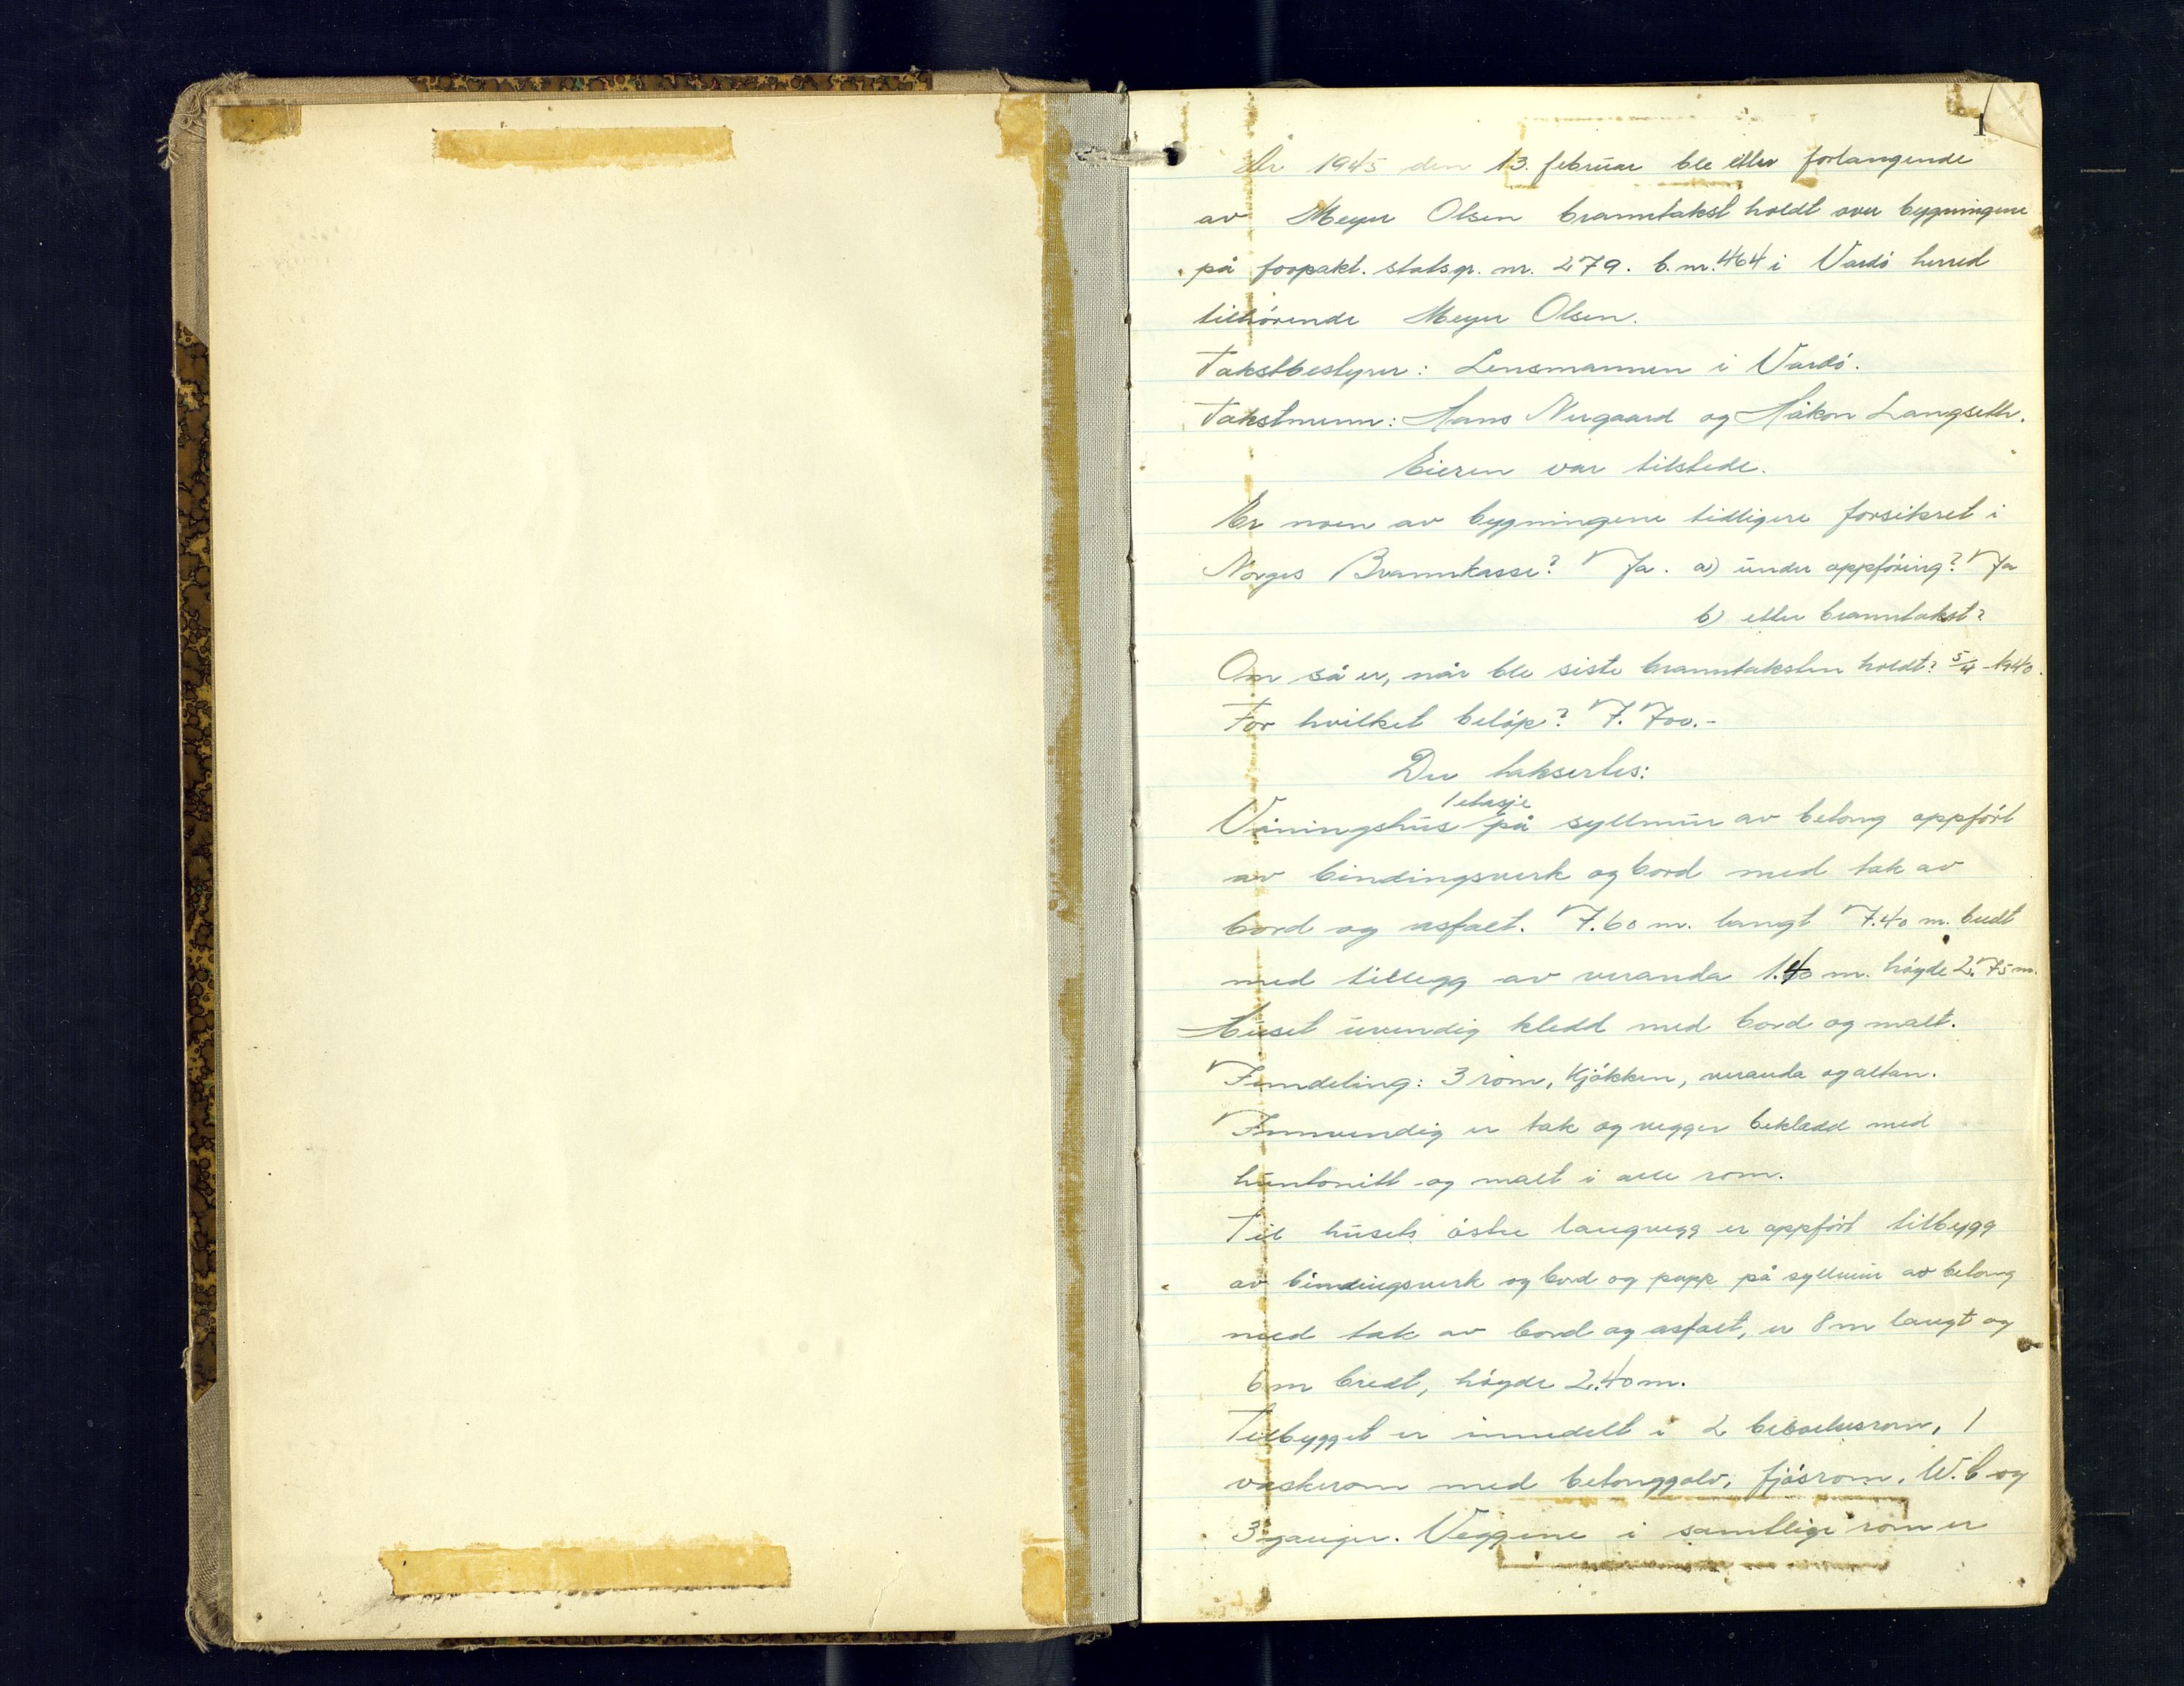 1
År 1945 den 13. februar ble etter forlangende
av Meyer Olsen branntakst holdt over bygningene
på forpakt. statsgr. nr. 279. b.nr. 464 i Vardö herred
tilhörende Meyer Olsen.
Takstbestyrer: Lensmannen i Vardö.
Takstmenn: Hans Nergaard og Håkon Langseth.
Eieren var tilstede.
Er noen av bygningene tidligere forsikret i
Norges Brannkasse? Ja. a) under oppföring? Ja
b) etter branntakst?
Om så er, når ble siste branntaksten holdt? 5/4 - 1940.
For hvilket belöp? 7.700.-
Der taksertes:
1 etasje
Våningshus på syllmur av betong oppfört
av bindingsverk og bord med tak av
bord og asfalt. 7.60 m. langt 7.40 m. bredt
med tillegg av veranda 1.40 m. höyde 2.75 m.
Huset utvendig kledd med bord og malt.
Inndeling: 3 rom, kjökken, veranda og altan.
Innvendig er tak og vegger bekledd med
huntonitt og malt i alle rom.
Til husets östre langvegg er oppfört tilbygg
av bindingsverk og bord og papp på syllmur av betong
med tak av bord og asfalt, er 8 m langt og
6 m bredt, höyde 2.40 m.
Tilbygget er inndelt i 2 beboelsesrom, 1
vaskerom med betonggolv, fjösrom, W.C og
3 ganger. Veggene i samtlige rom er